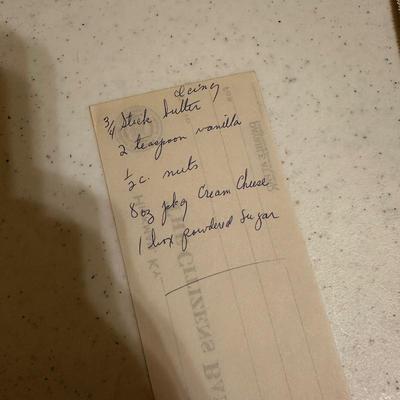 Icing
3/4 Stick butter
2 teaspoon vanilla
1/2 c. nuts
8 oz pkg Cream Cheese
1 box powdered Sugar
THE CITIZENS BA